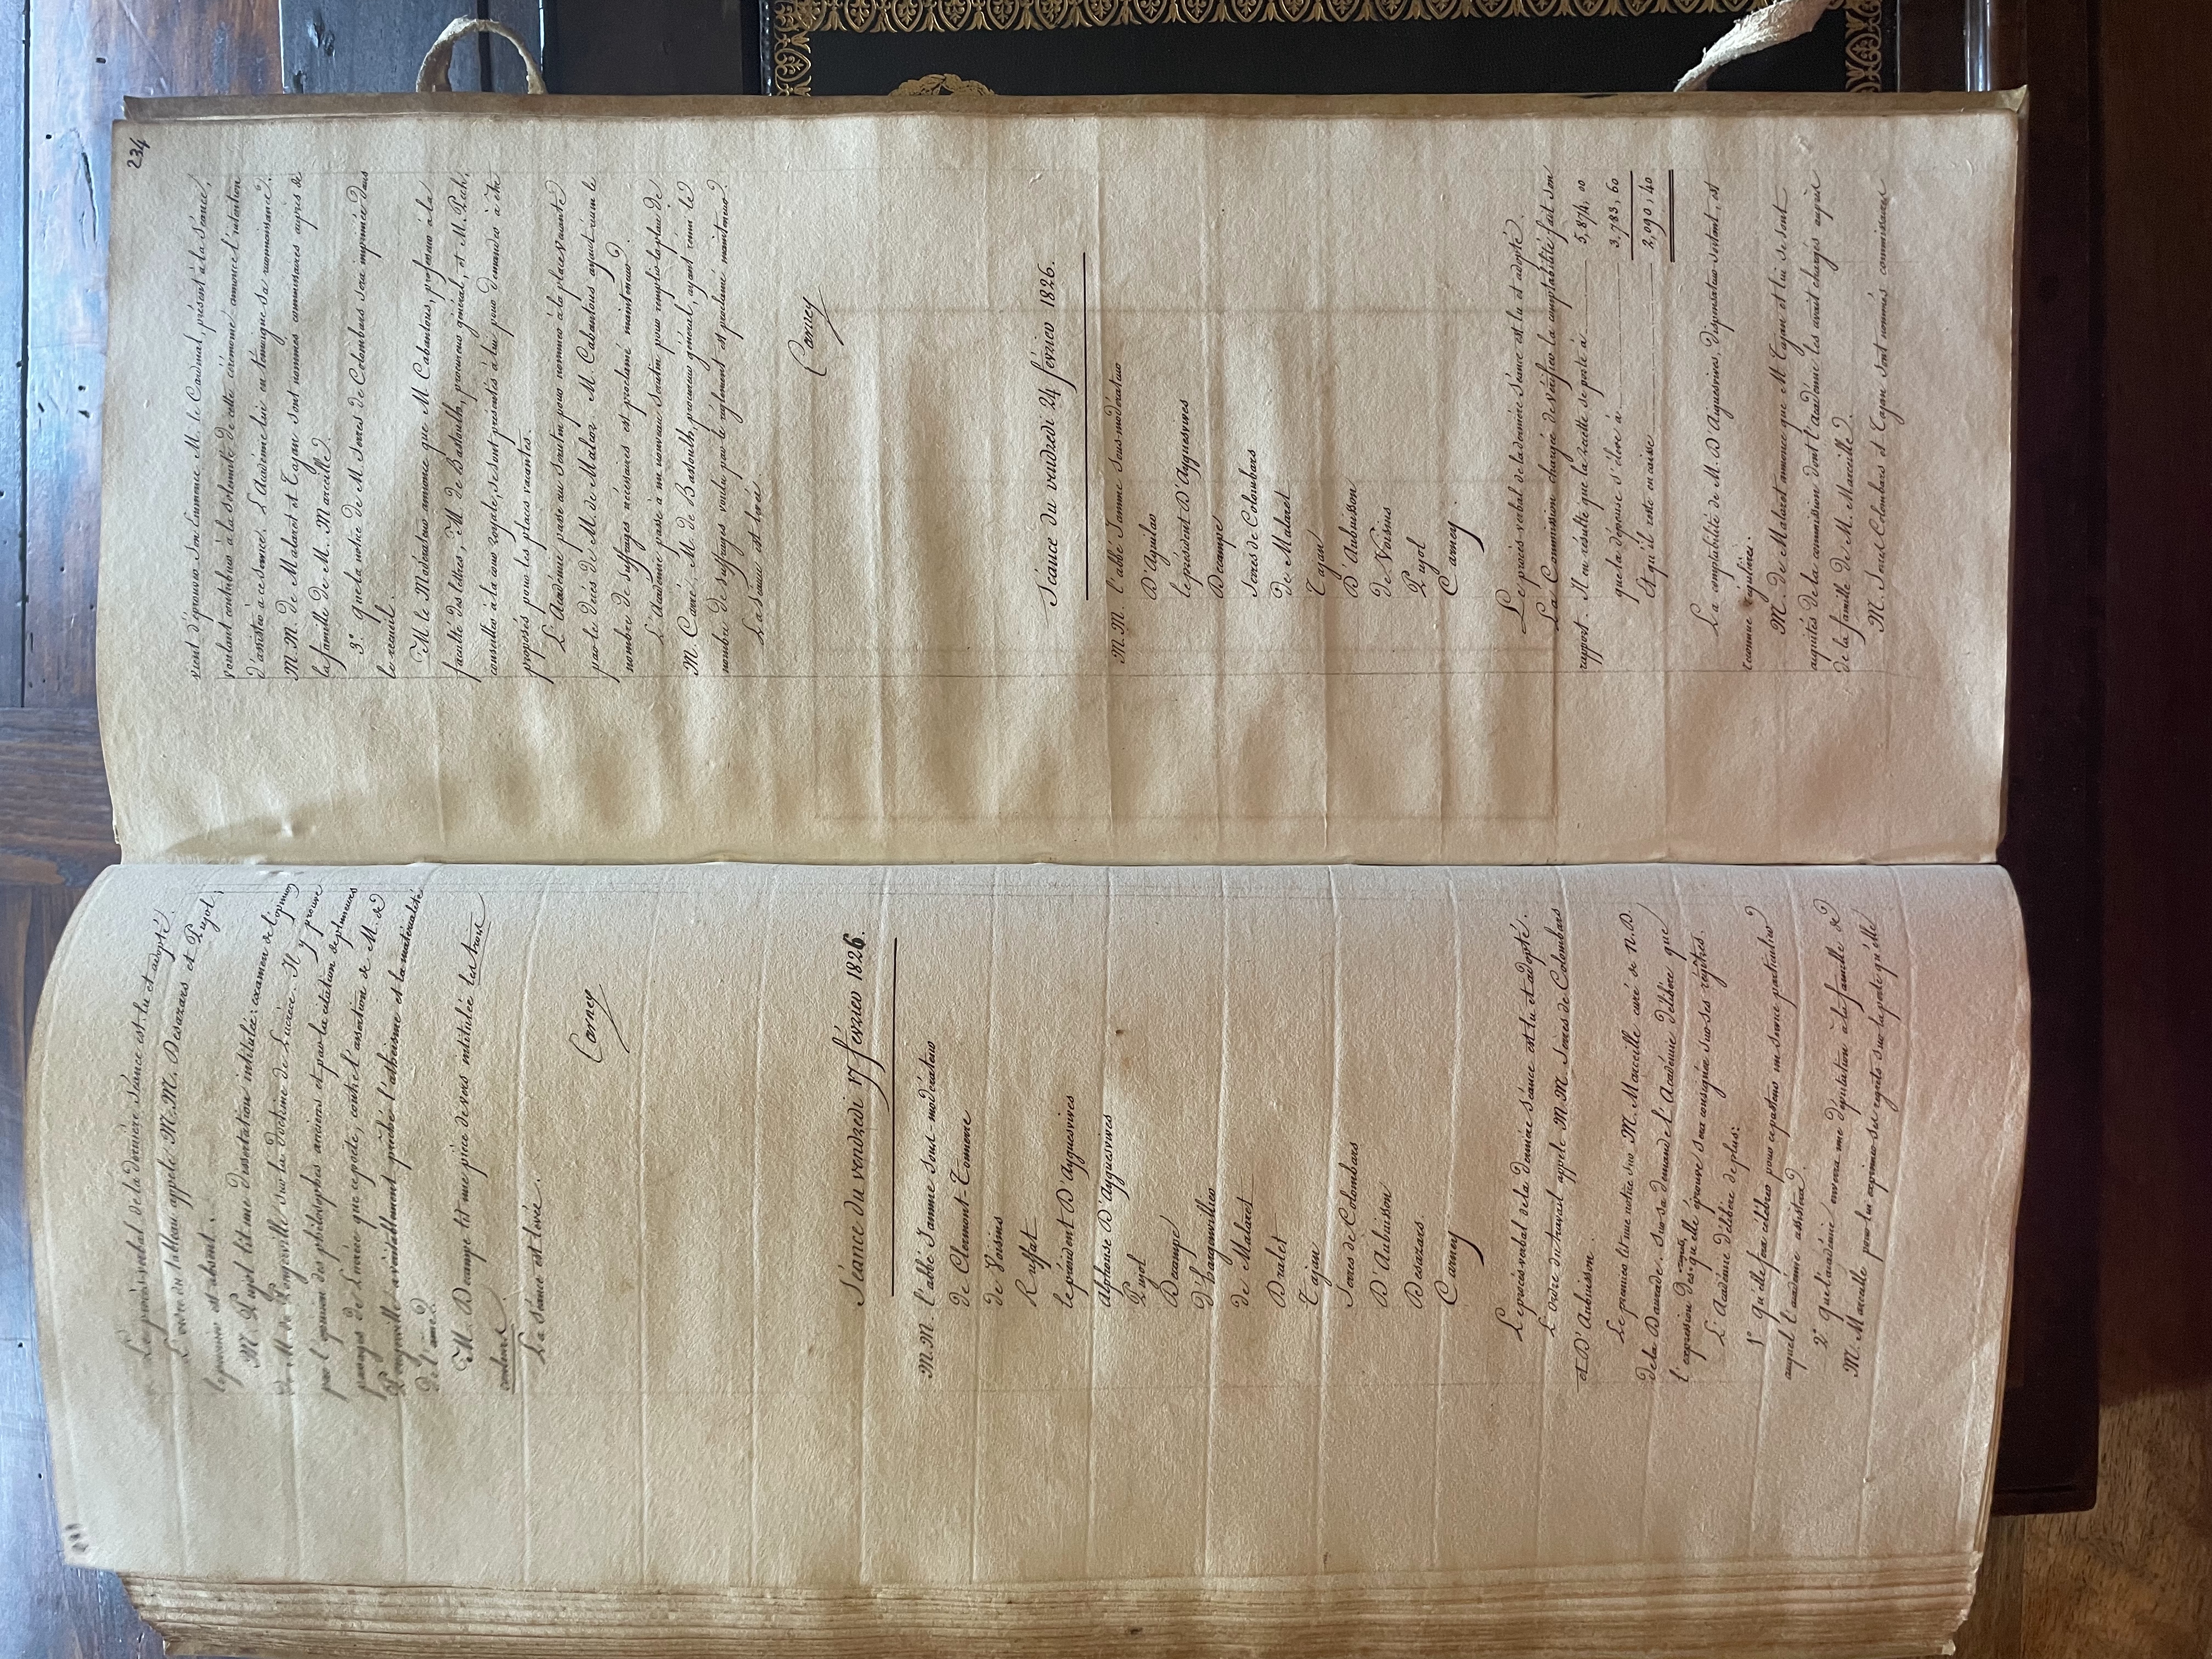 Le procès-verbal de la dernière Séance est lu et adopté.
L'ordre du tableau appele M.M. Desazars et Pujol,
le premier est absent.
M. Pujol lit une dissertation intitulée: examen de l'opinion
de M. de Pongerville sur la doctrine de Lucrèce. Il y prouve
par l'opinion des philosophes anciens et par la citation de plusieurs
passages de Lucrèce que ce poète, contre l'assertion de M. de
Pongerville a véritablement prêché l'athéisme et la matérialité
de l'âme.
M. Decampe lit une pièce de vers intitulée les trois
La Séance est levée.
Carney
Séance du vendredi 17 février 1826.
M.M. l'abbé Jamme sous-modérateur
de Clermont-Tonnerre
de Voisins
Ruffat
le président D'Ayguesvives
alphonse D'Ayguesvives
Pujol
Decampe
d'hargenvillier
de Malaret
Dralet
Tajan
Serres de Colombars
D'Aubuisson
Desazars.
Carney
Le procès-verbal de la dernière Séance est lu et adopté.
L'ordre du travail appele M.M. Serres de Colombars
et D'Aubuisson.
Le premier lit une notice sur M. Marceille curé de N.D.
de la Daurade. Sur sa demande l'Académie délibère que
l'expression des regrets qu'elle éprouve sera consignée sur ses régitres.
L'Académie délibère de plus:
1° Qu'elle fera célébrer pour ce pasteur un service particulier
auquel l'académie assistera.
2° Que l'académie enverra une députation à la famille de
M. Marceille pour lui exprimer ses regrets sur la perte qu'elle
234
vient d'éprouver. Son Eminence M. le Cardinal, présent à la Séance,
voulant contribuer à la solemnité de cette cérémonie annonce l'intention
d'assister à ce service. L'Académie lui en témoigne sa reconnoissance.
M.M. de Malaret et Tajan sont nommés commissaires auprès de
la famille de M. Marceille.
3° que la notice de M. Serres de Colombars sera imprimée dans
le recueil.
M. le Modérateur annonce que M. Cabantous, professeur à la
faculté des lettres, M. de Bastoulh, procureur général, et M. Pech,
conseiller à la cour royale, se sont présentés à lui pour demander à être
proposés pour les places vacantes.
L'Académie passe au Scrutin pour nommer à la place vacante
par le décès de M. de Malcor. M. Cabantous ayant réuni le
nombre de suffrages nécessaires est proclamé mainteneur.
L'Académie passe à un nouveau Scrutin pour remplir la place de
M. Carré, M. de Bastoulh, procureur général, ayant réuni le
nombre de suffrages voulu par le règlement est proclamé mainteneur.
La Séance est levée
Carney
Séance du vendredi 24 février 1826.
M.M. l'abbé Jamme sous-modérateur
D'Aguilar
le président D'Ayguesvives
Decampe
Serres de Colombars
de Malaret
Tajan
D'Aubuisson
de Voisins
Pujol
Carney.
Le procès-verbal de la dernière Séance est lu et adopté.
La Commission chargée de vérifier la comptabilité fait son
rapport. Il en résulte que la recette se porte à 5,874, 00
que la dépense s'élève à 3,783, 60
Et qu'il reste en caisse 2,090, 40
La comptabilité de M. D'Aiguesvives, Dispensateur sortant, est
reconnue régulière.
M. de Malaret annonce que M. Tajan et lui se sont
acquités de la commission dont l'académie les avait chargés auprès
de la famille de M. Marceille.
M. Serres Colombars et Tajan sont nommés commissaires